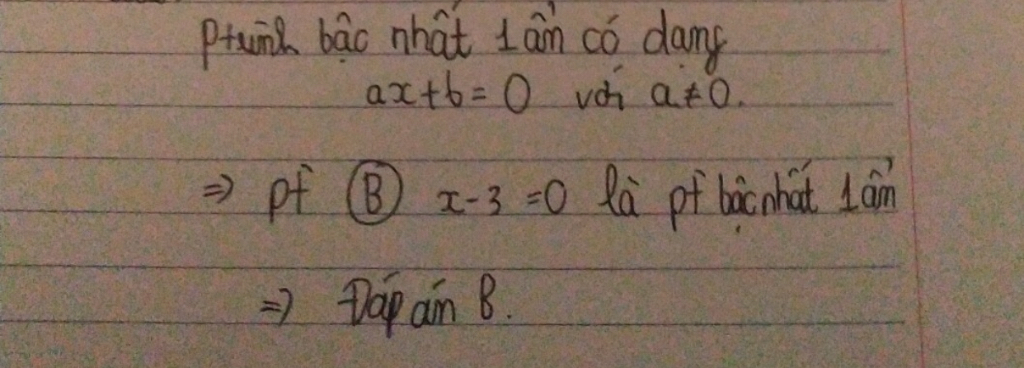 Ptrình bậc nhất 1 ẩn có dạng
ax+b=0 với a≠0.
=> pt Ⓑ x-3=0 là pt bậc nhất 1 ẩn
=> Đáp án B.